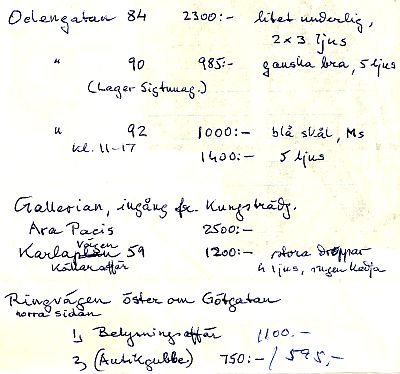 Odengatan 84 2300:- litet underlig,
2 x 3 ljus
" 90 985:- ganska bra, 5 ljus
(Lager Sigtunag.)
" 92 1000:- blå skål, Ms
kl. 11-17 1400:- 5 ljus
Gallerian, ingång fr. Kungsträdg.
Ara Pacis 2500:-
Karlavägen 59 1200:- stora droppar
Källaraffär 4 ljus, ingen kedja
Ringvägen öster om Götgatan
norra sidan
1, Belysningsaffär 1100.-
2, (Antikgubbe) 750:- / 595,-